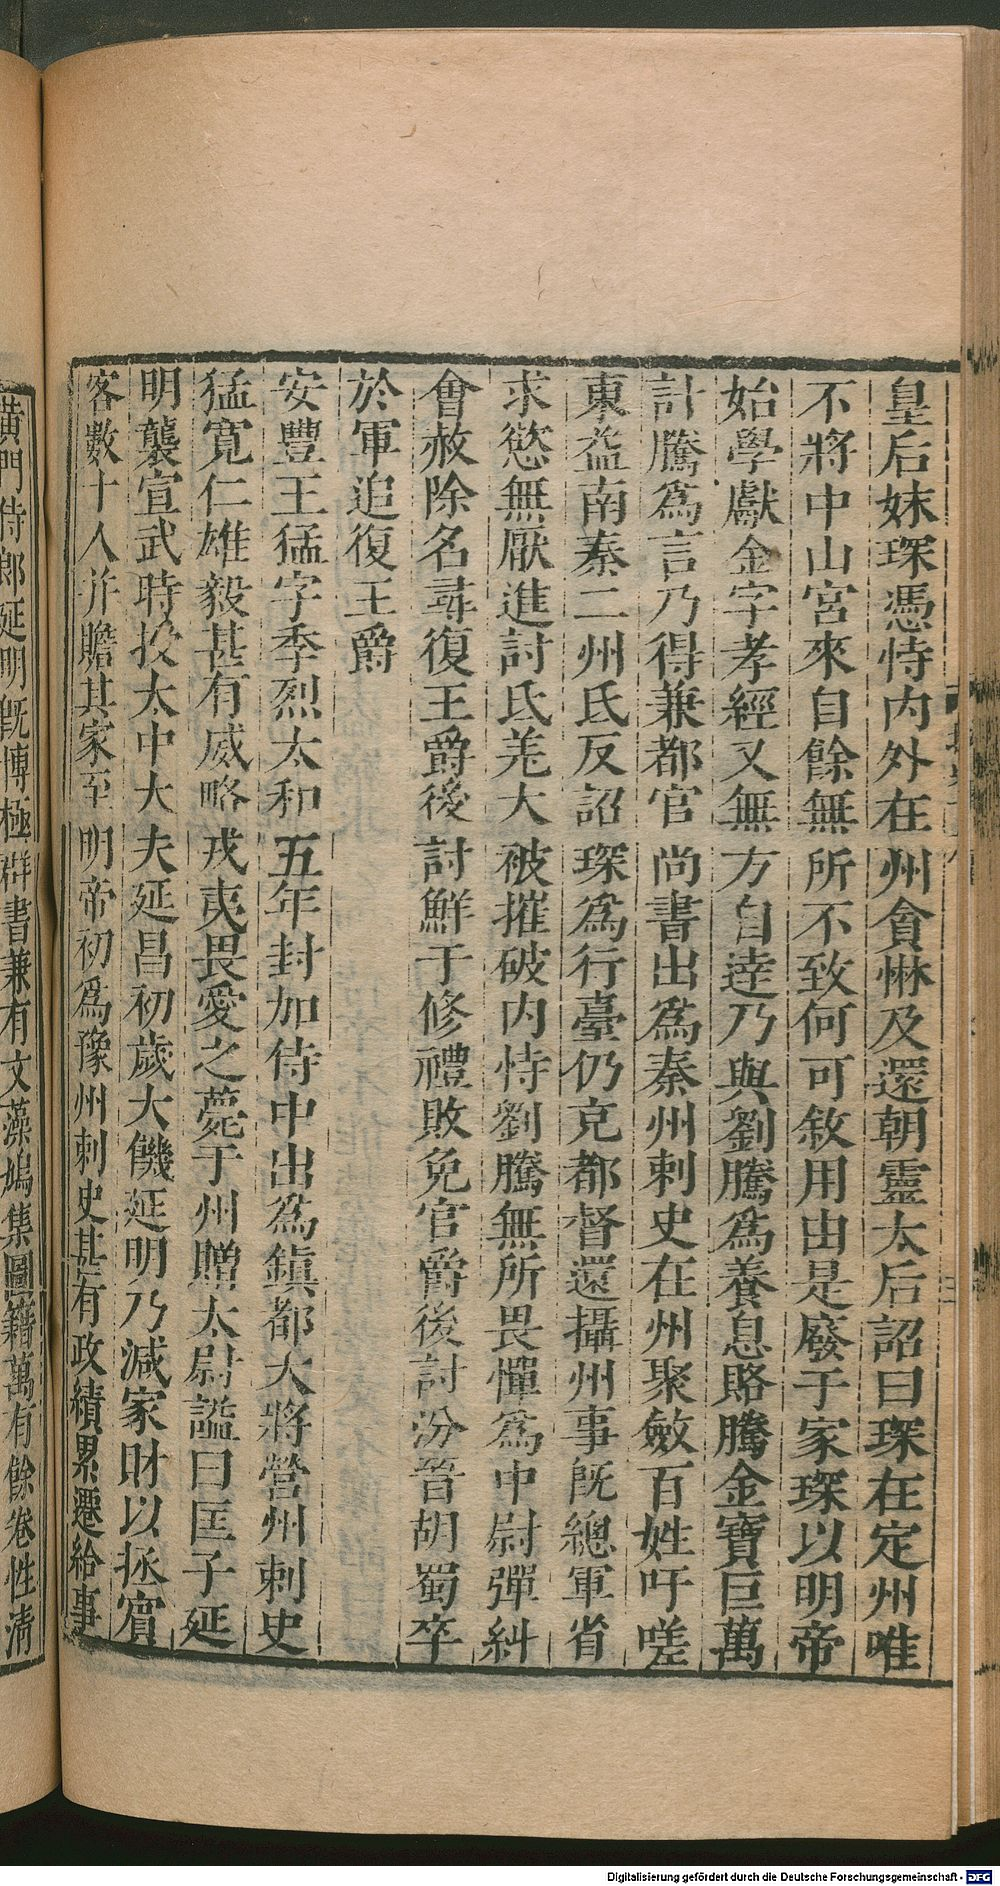 皇后妹琛憑恃内外在州貪惏及還朝靈太后詔曰琛在定州唯
不將中山宮來自餘無所不致何可敘用由是廢于家琛以明帝
始學獻金字孝經又無方自達乃與劉騰爲養息賂騰金寶巨萬
計騰爲言乃得兼都官尚書出爲秦州刺史在州聚斂百姓吁嗟
東益南秦二州氐反詔琛爲行臺仍克都督還攝州事旣總軍省
求慾無厭進討氐羌大被摧破内恃劉騰無所畏憚爲中尉彈糾
會赦除名尋復王爵後討鮮于修禮敗免官爵後討汾晉胡蜀卒
於軍追復王爵
安豐王猛字季烈太和五年封加侍中出爲鎮都大將營州刺史
猛寬仁雄毅甚有威略戎夷畏愛之薨于州贈太尉謚曰匡子延
明襲宣武時投太中大夫延昌初歲大饑延明乃減家財以拯賓
客數十人并贍其家至明帝初爲豫州刺史甚有政績累遷給事
黃門侍郎延明旣博極群書兼有文藻鳩集圖籍萬有餘卷性清
Digitalisierung gefördert durch die Deutsche Forschungsgemeinschaft - DFG